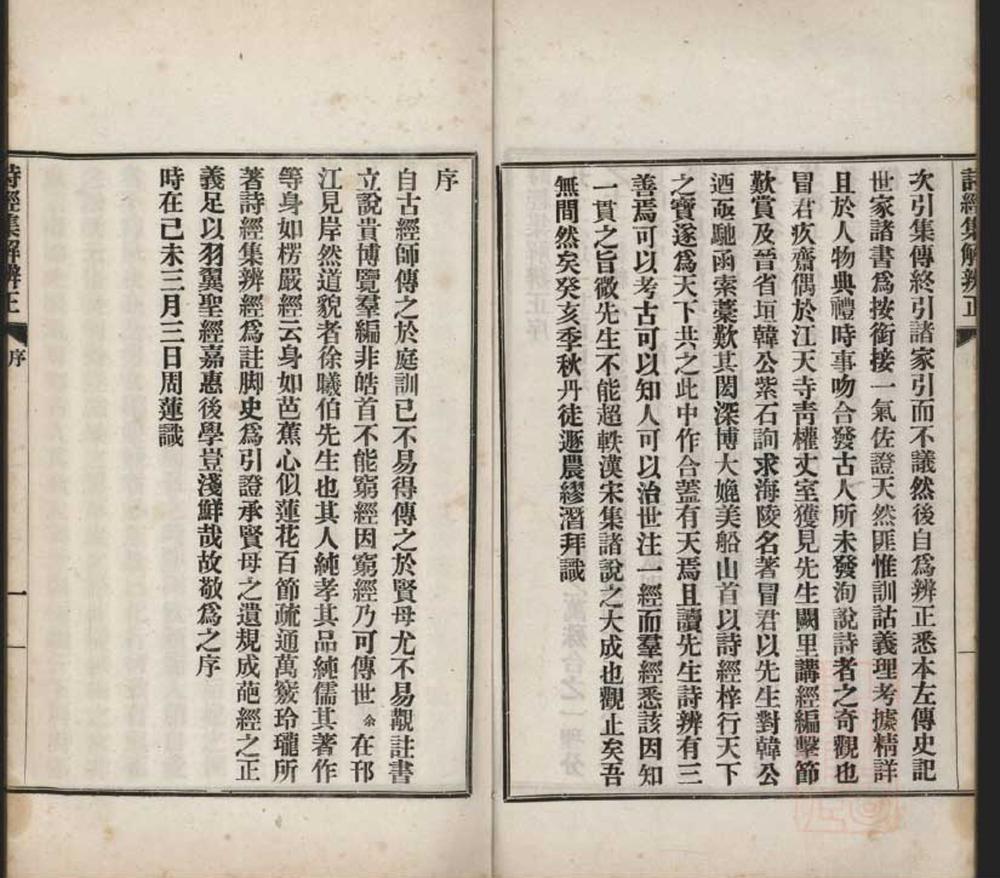 詩經集解辨正
次引集傳終引諸家引而不議然後自爲辨正悉本左傳史記
世家諸書爲按銜接一氣佐證天然匪惟訓詁義理考據精詳
且於人物典禮時事吻合發古人所未發洵說詩者之奇觀也
冒君疚齋偶於江天寺靑權丈室獲見先生闕里講經編擊節
歎賞及晉省垣韓公紫石詢求海陵名著冒君以先生對韓公
迺亟馳函索藁歎其閎深博大媲美船山首以詩經梓行天下
之寶遂爲天下共之此中作合蓋有天焉且讀先生詩辨有三
善焉可以考古可以知人可以治世注一經而羣經悉該因知
一貫之旨微先生不能超軼漢宋集諸說之大成也觀止矣吾
無間然矣癸亥季秋丹徒遯農繆潛拜識
序
自古經師傳之於庭訓已不易得傳之於賢母尤不易覯註書
立說貴博覽羣編非皓首不能窮經因窮經乃可傳世余在邗
江見岸然道貌者徐曦伯先生也其人純孝其品純儒其著作
等身如楞嚴經云身如芭蕉心似蓮花百節疏通萬竅玲瓏所
著詩經集辨經爲註脚史爲引證承賢母之遺規成葩經之正
義足以羽翼聖經嘉惠後學豈淺鮮哉故敬爲之序
時在己未三月三日周蓮識
詩經集解辨正
序
一